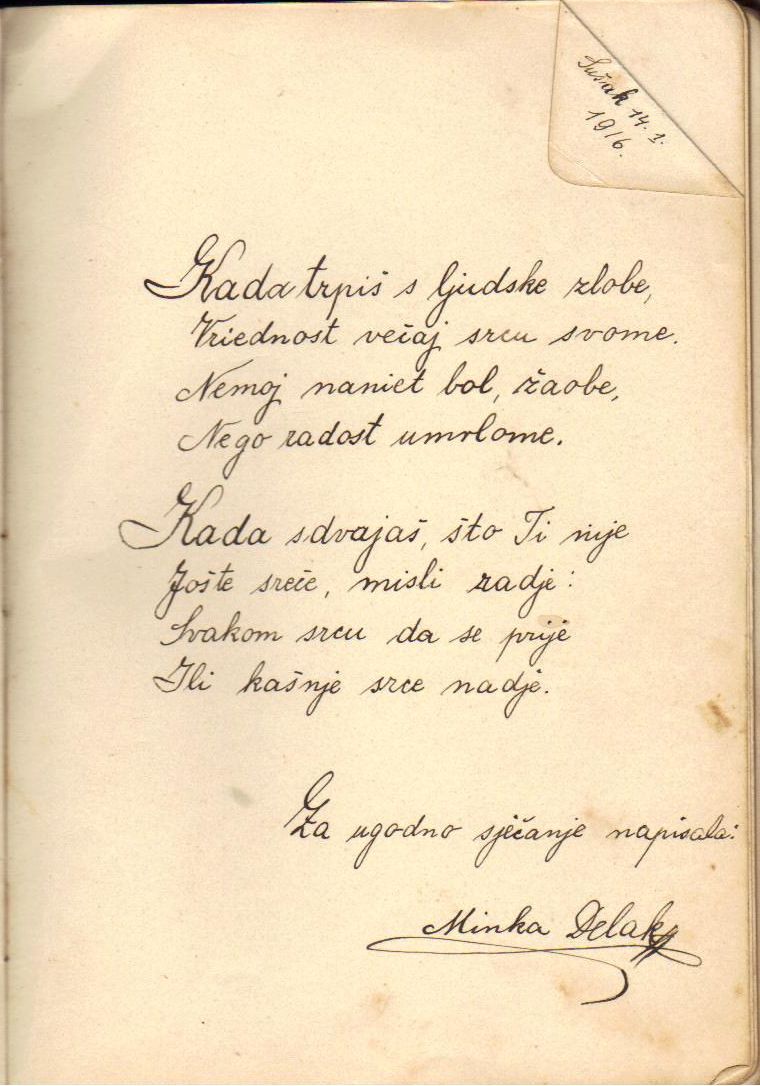 Sušak 14. 1.
1916.
Kada trpiš s ljudske zlobe,
Vriednost većaj srcu svome.
Nemoj naniet bol, žaobe,
Nego radost umrlome.
Kada sdvajaš, što Ti nije
Jošte sreće, misli zadje:
Svakom srcu da se prije
Ili kašnje srce nadje.
Za ugodno sjećanje napisala:
Minka Delak